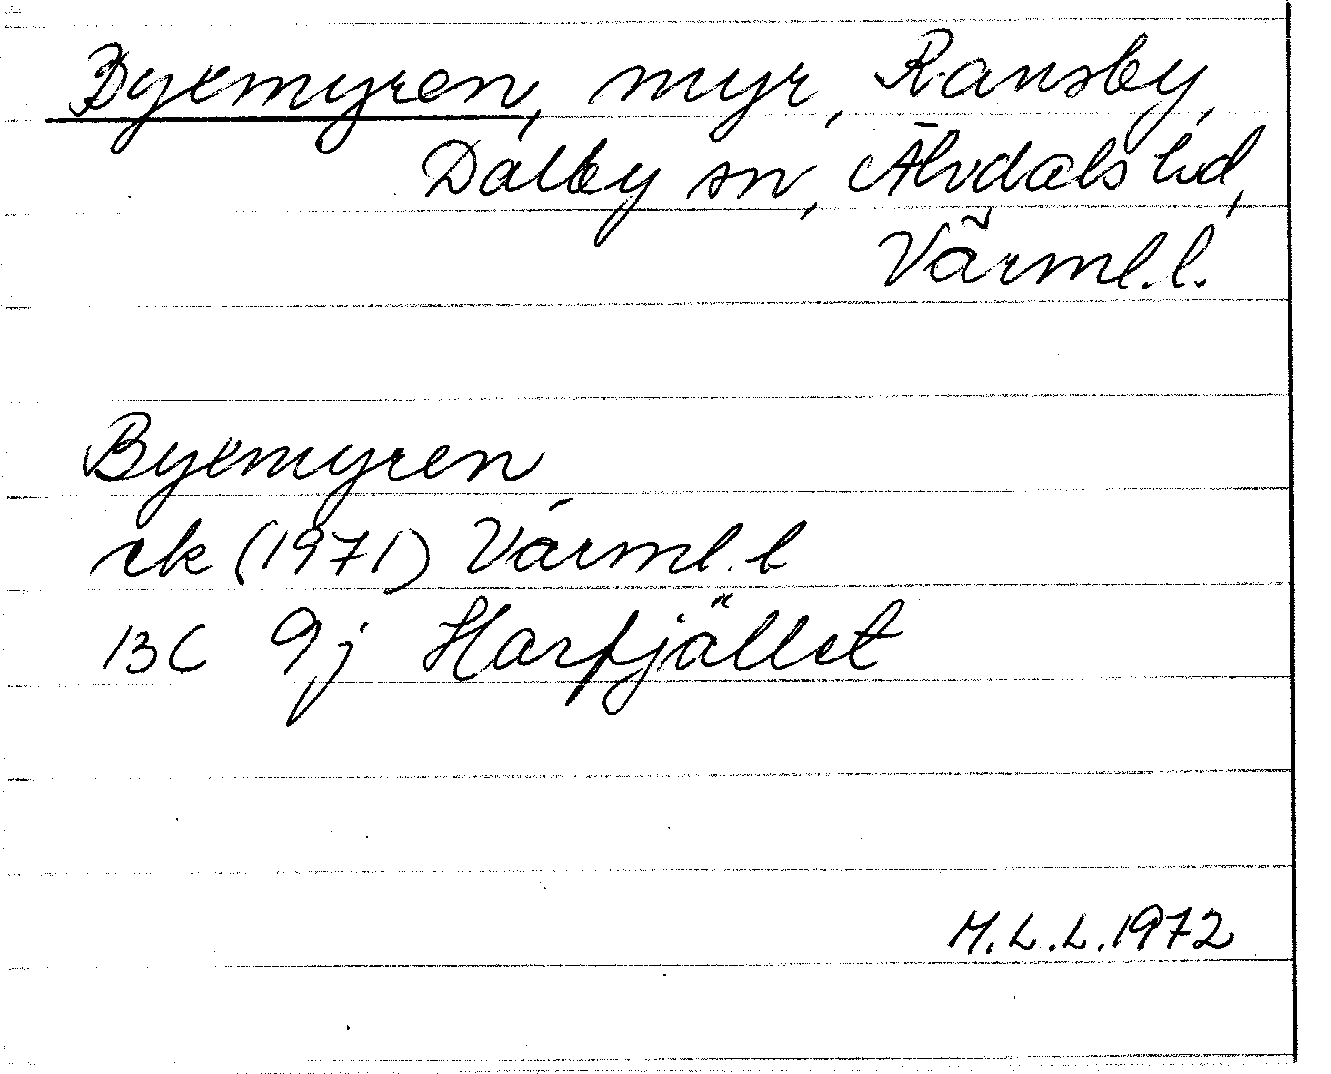 Byemyren, myr, Ransby,
Dalby sn, Älvdals hd,
Värml.l.
Byemyren
rk (1971) Värml. l
13C 9j Harfjället
M.L.L.1972